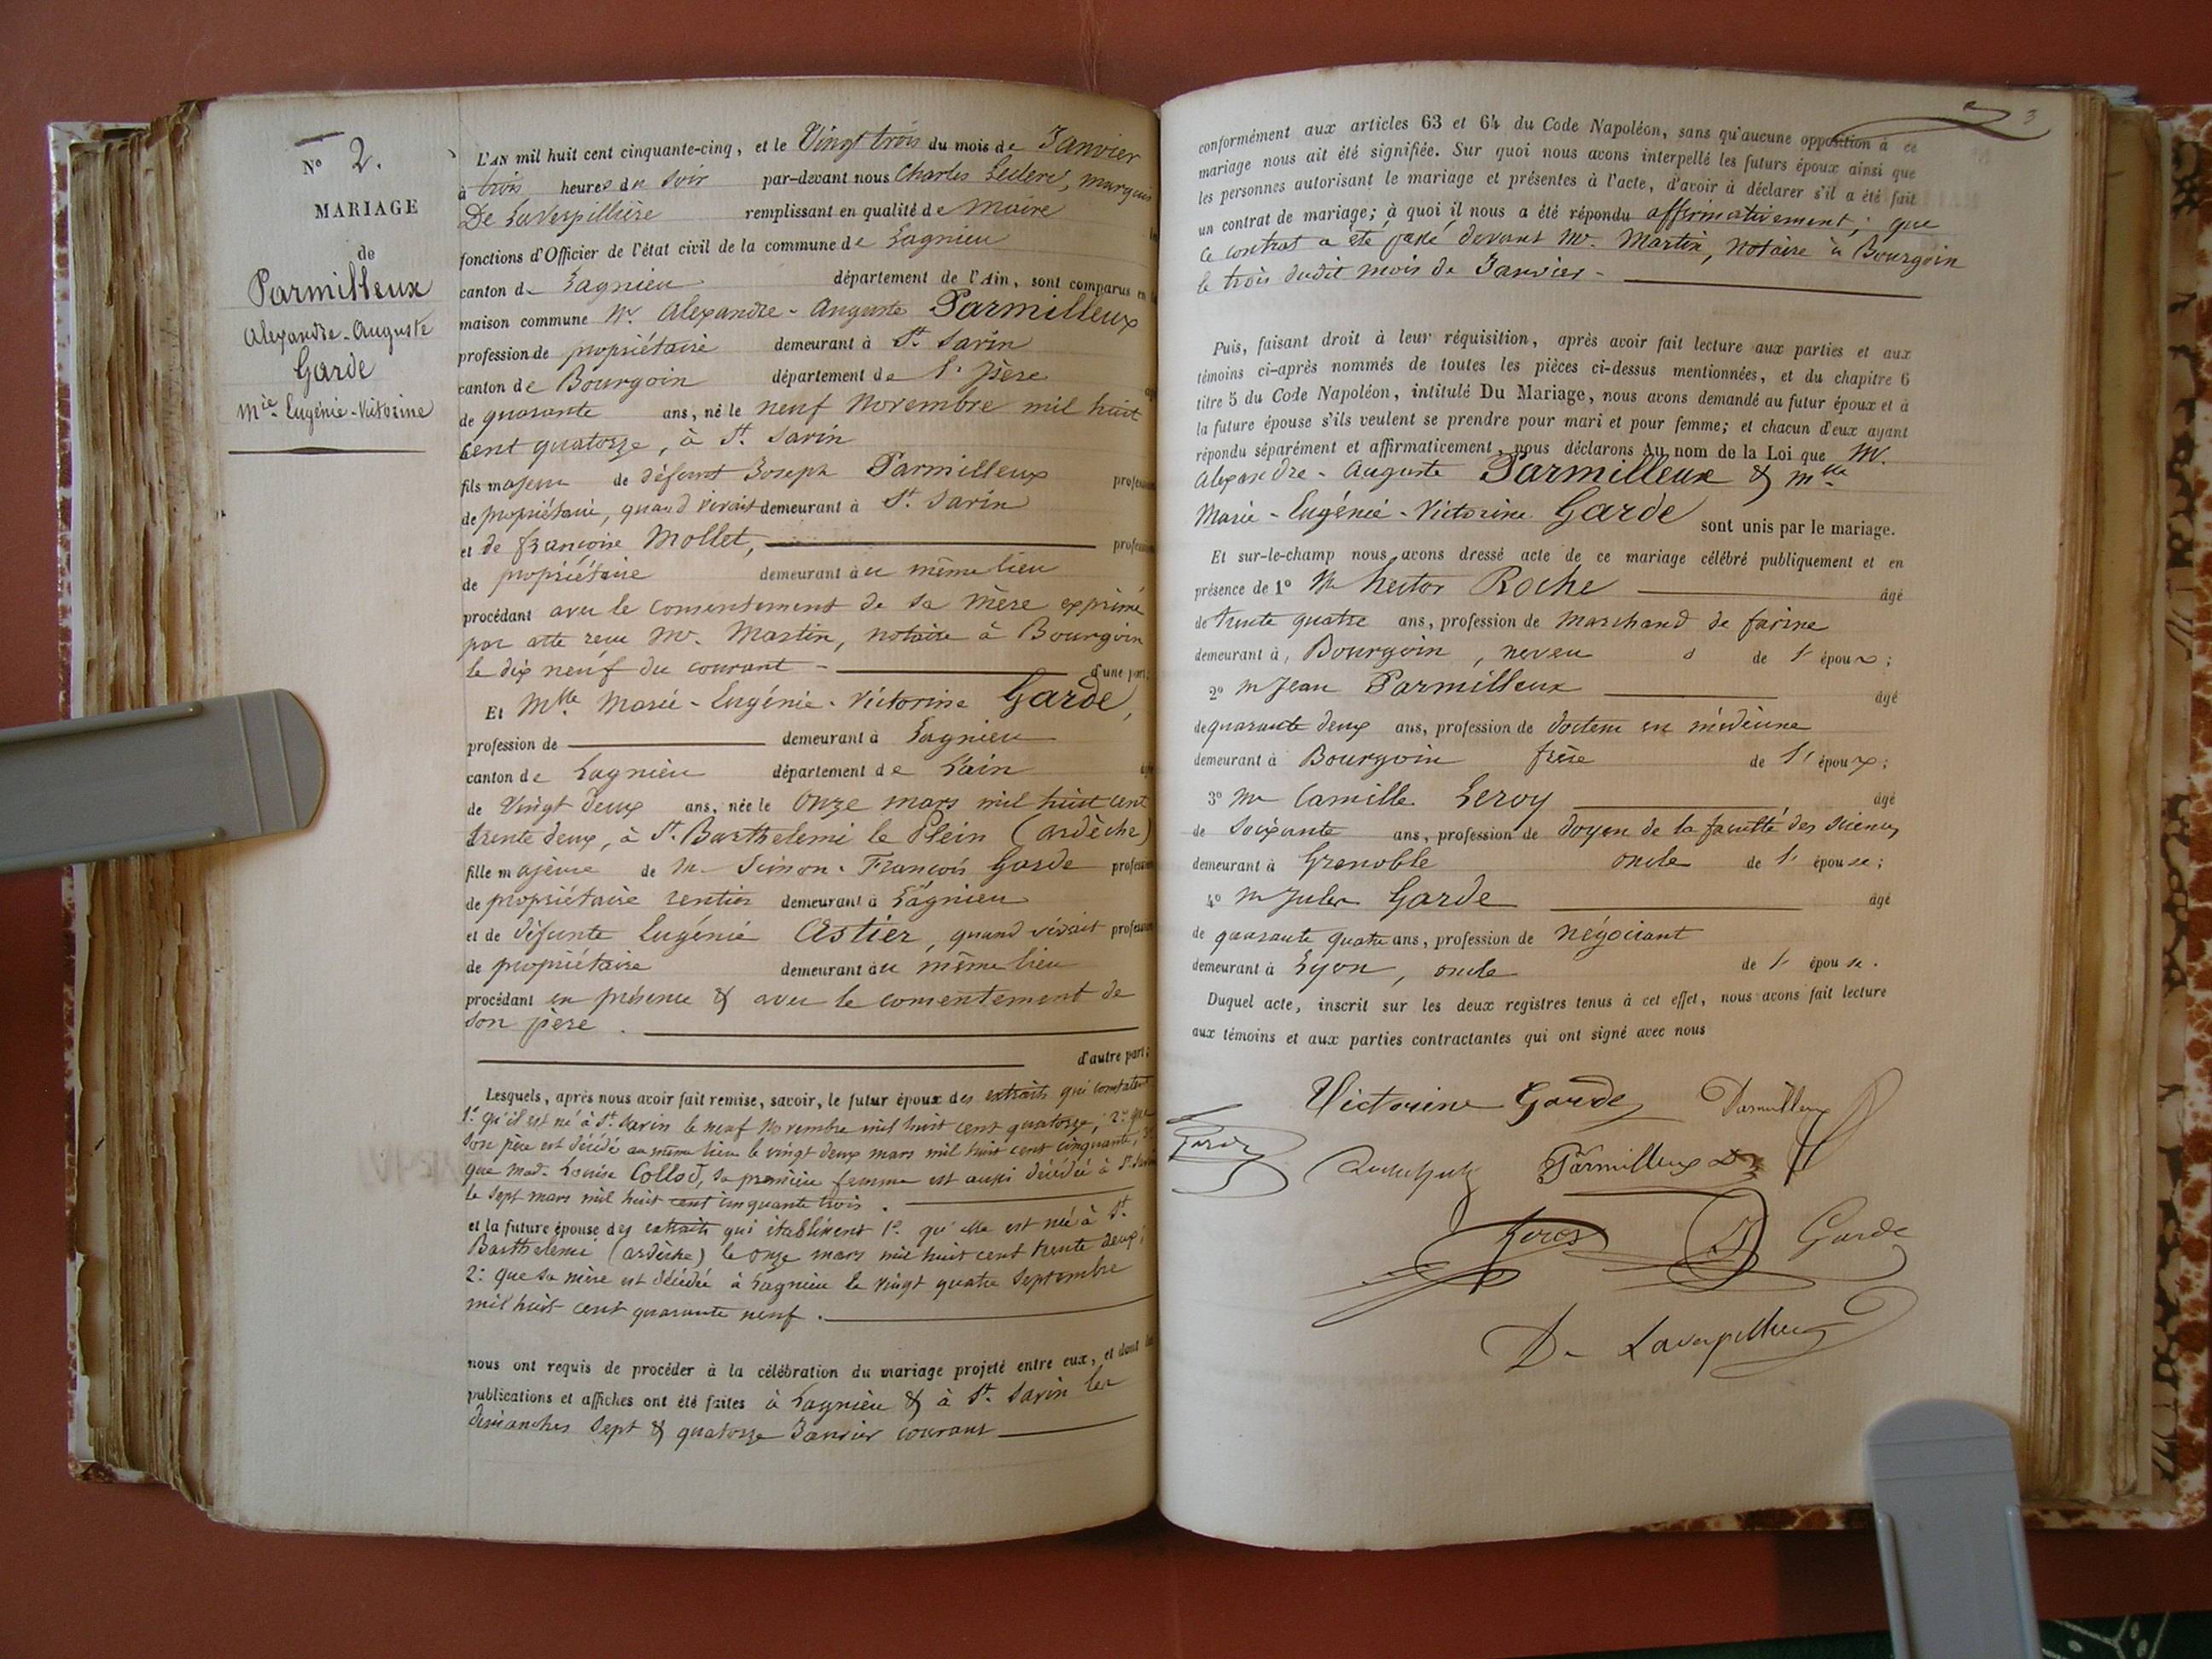 N° 2.
MARIAGE
de
Parmilleux
Alexandre-Auguste
Garde
Mie Eugénie-Victorine
L'AN mil huit cent cinquante-cinq, et le Vingt trois du mois de Janvier
à trois heures du soir par-devant nous Charles Leclerc, marquis
De LaVerpillière remplissant en qualité de Maire
fonctions d'Officier de l'état civil de la commune de Lagnieu
canton de Lagnieu département de l'Ain, sont comparus en
maison commune Mr Alexandre-Auguste Parmilleux
profession de propriétaire demeurant à St Savin
canton de Bourgoin département de l'isère
de quarante ans, né le neuf Novembre mil huit
cent quatorze, à St. Savin
fils majeur de défunt Joseph Parmilleux
de propriétaire, quand vivait demeurant à St. Savin
et de françoise Mollet,
de propriétaire demeurant au même lieu
procédant avec le consentement de sa mère exprimé
par acte reçu Mr. Martin, notaire à Bourgoin
le dix neuf du courant - d'une part;
Et Mlle Marie-Eugénie-Victorine Garde,
profession de demeurant à Lagnieu
canton de Lagnieu département de L'ain
de Vingt deux ans, née le Onze mars mil huit cent
trente deux, à St. Barthelemi le Plein (ardèche)
fille majeure de Mr Simon-François Garde
de propriétaire rentier demeurant à Lagnieu
et de défunte Eugénie Astier, quand vivait
de propriétaire demeurant au même lieu
procédant en présence & avec le consentement de
son père.
d'autre part;
Lesquels, après nous avoir fait remise, savoir, le futur époux des extraits qui constatent
1° qu'il est né à St. Savin le neuf Novembre mil huit cent quatorze; 2° que
son père est décédé au même lieu le vingt deux mars mil huit cent cinquante, 3°
que mad. Louise Collod, sa première femme est aussi décédée à St. Savin
le sept mars mil huit cent cinquante trois.
et la future épouse des extraits qui établissent 1° qu'elle est née à St.
Barthelemi (ardèche) le onze mars mil huit cent trente deux;
2° que sa mère est décédée à Lagnieu le vingt quatre Septembre
mil huit cent quarante neuf.
nous ont requis de procéder à la célébration du mariage projeté entre eux, et dont les
publications et affiches ont été faites à Lagnieu & à St. Savin les
dimanches sept & quatorze Janvier courant
3
conformément aux articles 63 et 64 du Code Napoléon, sans qu'aucune opposition à ce
mariage nous ait été signifiée. Sur quoi nous avons interpellé les futurs époux ainsi que
les personnes autorisant le mariage et présentes à l'acte, d'avoir à déclarer s'il a été fait
un contrat de mariage; à quoi il nous a été répondu affirmativement; que
ce contrat a été passé devant Mr. Martin, Notaire à Bourgoin
le trois dudit mois de Janvier -
Puis, faisant droit à leur réquisition, après avoir fait lecture aux parties et aux
témoins ci-après nommés de toutes les pièces ci-dessus mentionnées, et du chapitre 6
titre 5 du Code Napoléon, intitulé Du Mariage, nous avons demandé au futur époux et à
la future épouse s'ils veulent se prendre pour mari et pour femme; et chacun d'eux ayant
répondu séparément et affirmativement, nous déclarons Au nom de la Loi que Mr.
Alexandre-Auguste Parmilleux & Mlle
Marie-Eugénie-Victorine Garde sont unis par le mariage.
Et sur-le-champ nous avons dressé acte de ce mariage célébré publiquement et en
présence de 1° Mr hector Roche âgé
de trente quatre ans, profession de Marchand de farine
demeurant à Bourgoin, neveu de l'époux;
2° Mr Jean Parmilleux âgé
de quarante deux ans, profession de docteur en médecine
demeurant à Bourgoin frère de l'époux;
3° Mr Camille Leroy âgé
de soixante ans, profession de doyen de la faculté des sciences
demeurant à Grenoble oncle de l'épouse;
4° Mr Jules Garde âgé
de quarante quatre ans, profession de négociant
demeurant à Lyon, oncle de l'épouse.
Duquel acte, inscrit sur les deux registres tenus à cet effet, nous avons fait lecture
aux témoins et aux parties contractantes qui ont signé avec nous
Victorine Garde Parmilleux
Parmilleux D
Garde
De Laverpilliere